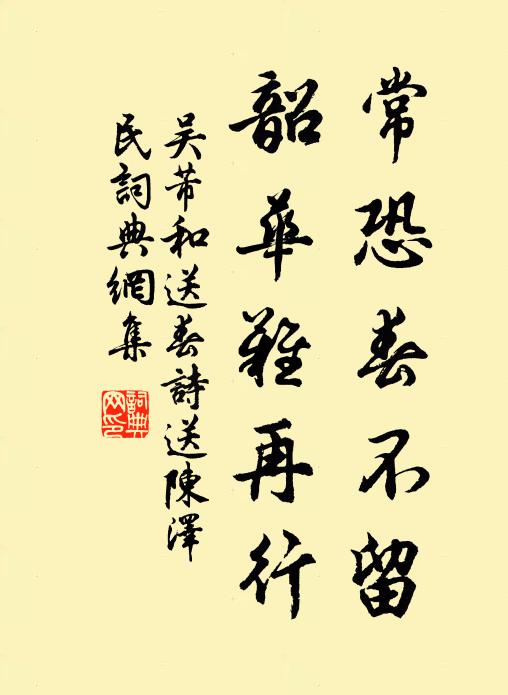 常恐春不留
韶華難再行
吴芾和送春詩送陳澤
民詞典網集
詞典
网印